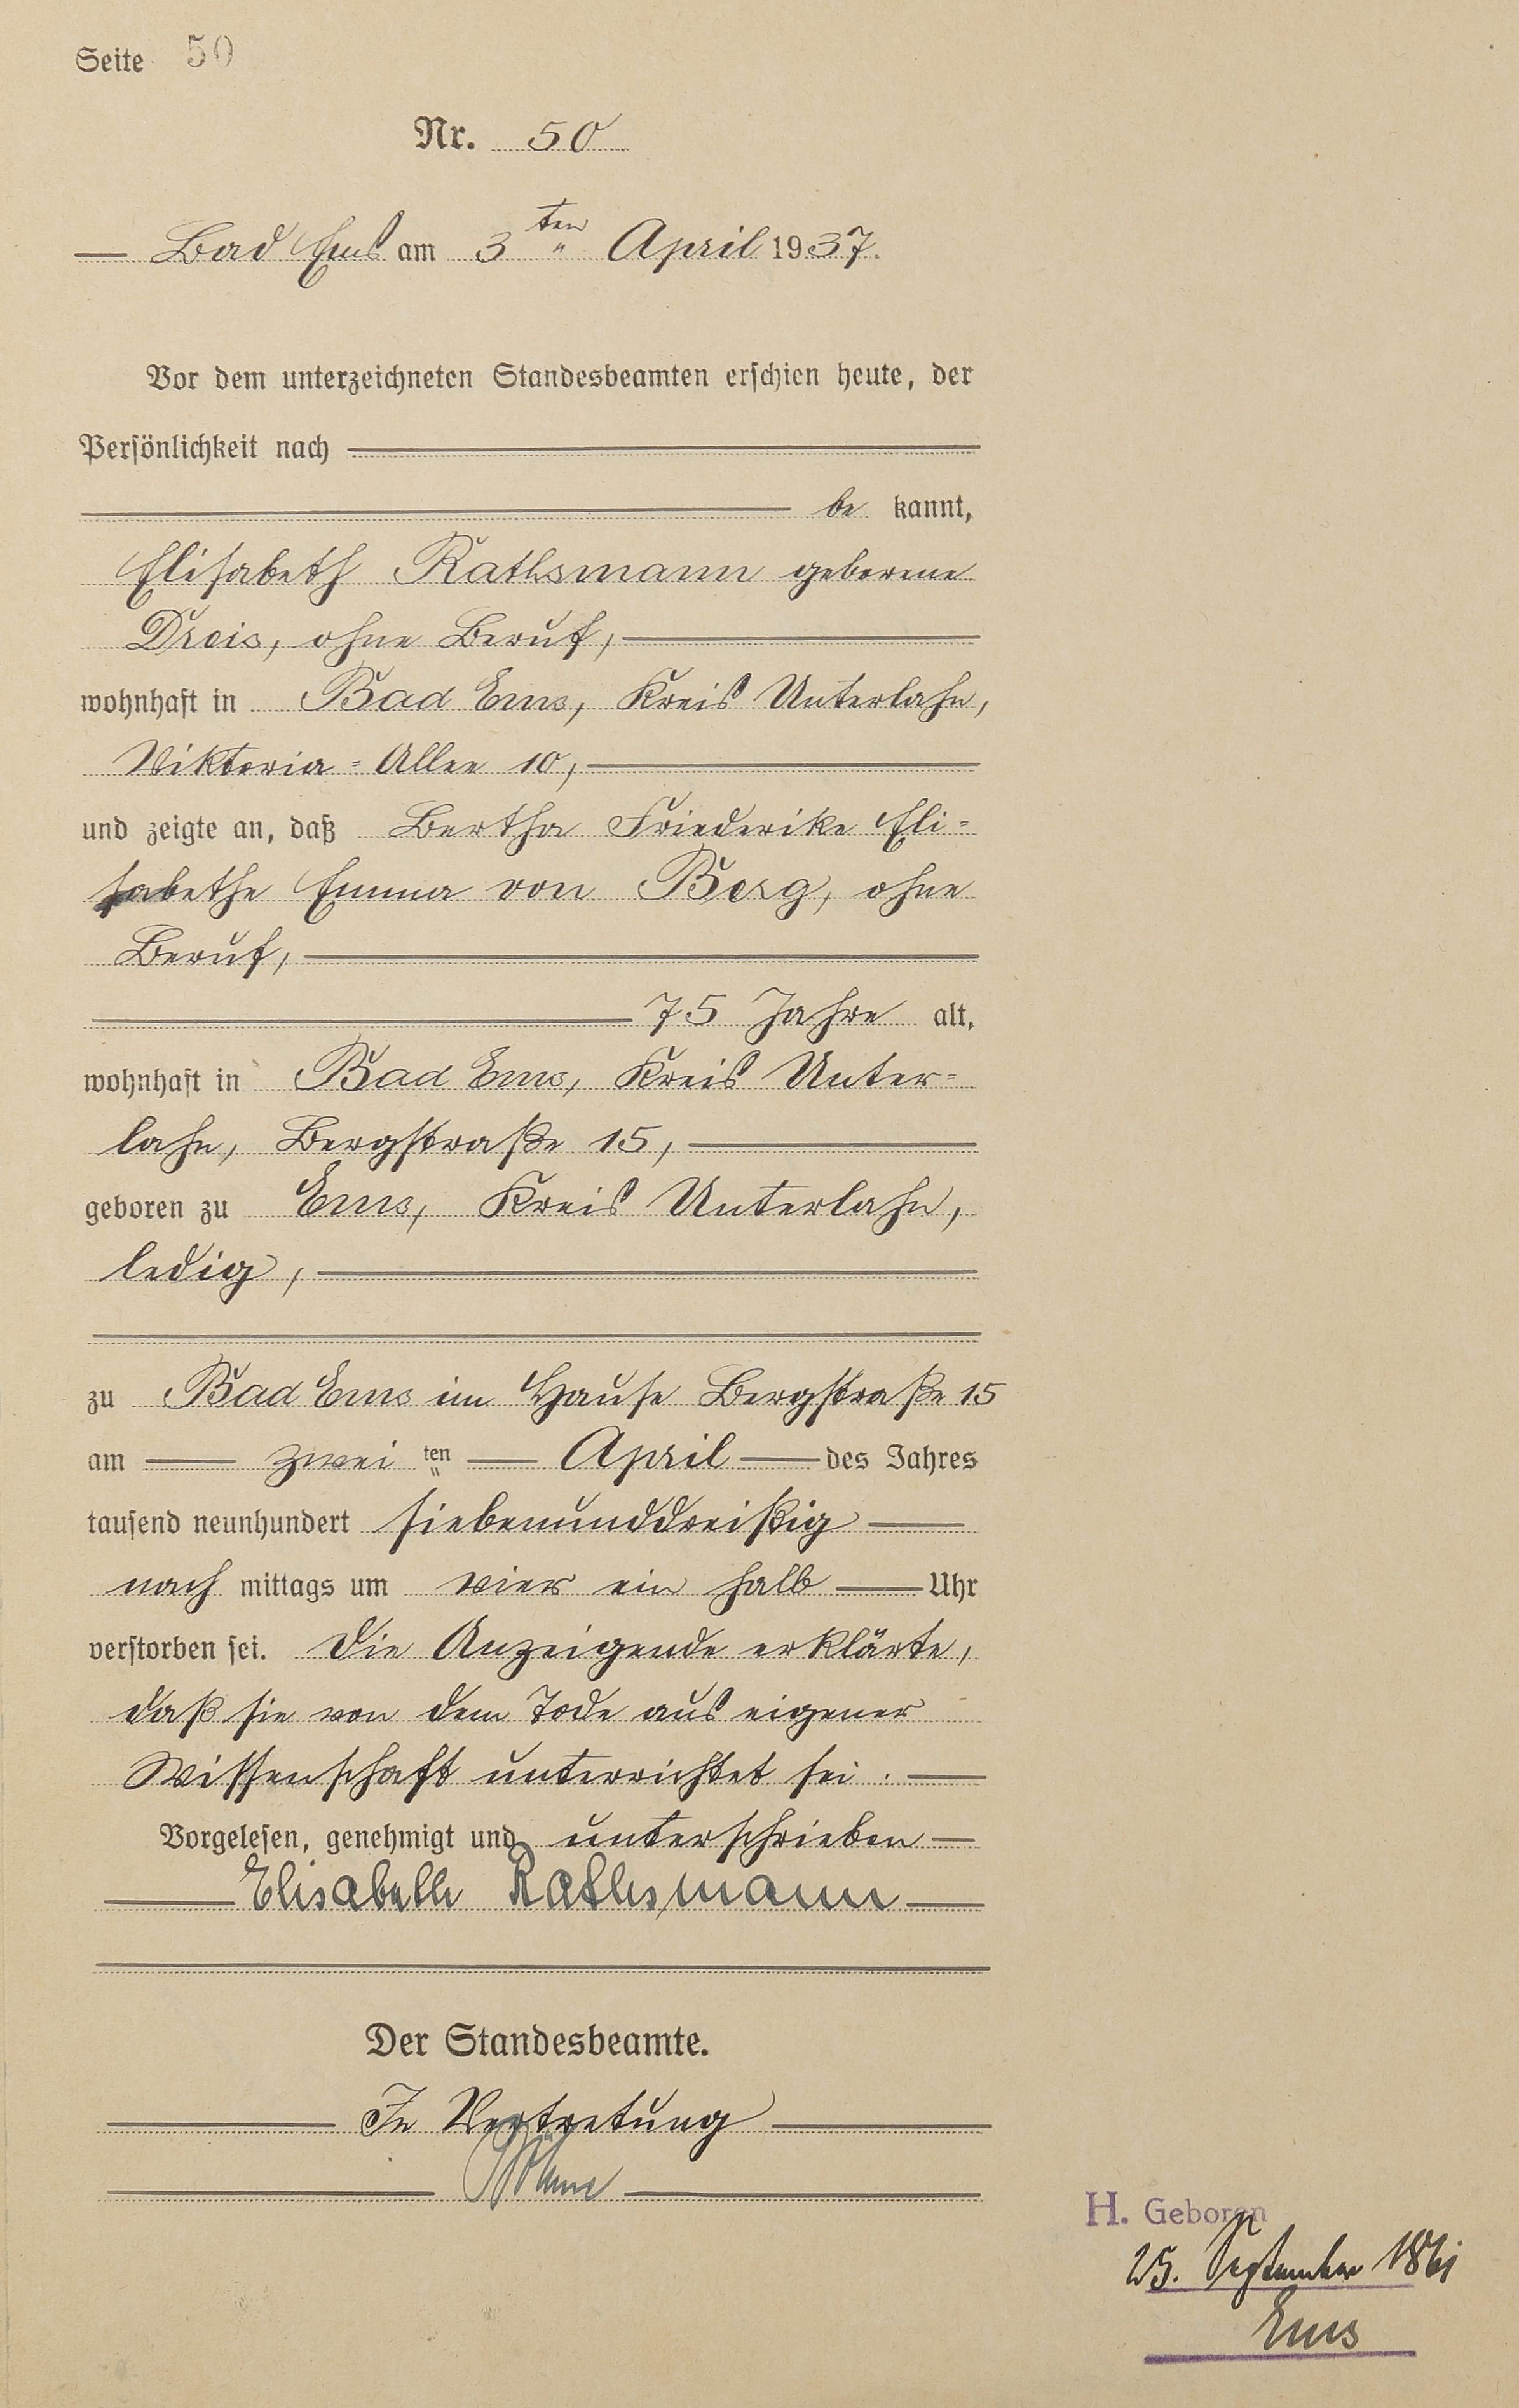 Seite 50
Nr. 50
Bad Ems am 3ten April 1937.
Vor dem unterzeichneten Standesbeamten erschien heute, der
Persönlichkeit nach
be kannt,
Elisabeth Rathsmann geborene
Dreis, ohne Beruf,
wohnhaft in Bad Ems, Kreis Unterlahn,
Viktoria=Allee 10,
und zeigte an, daß Bertha Friederike Eli=
sabethe Emma von Berg, ohne
Beruf,
75 Jahre alt,
wohnhaft in Bad Ems, Kreis Unter=
lahn, Bergstraße 15,
geboren zu Ems, Kreis Unterlahn,
ledig,
zu Bad Ems im Hause Bergstraße 15
am zwei ten April des Jahres
tausend neunhundert siebenunddreißig
nach mittags um vier ein halb Uhr
verstorben sei. Die Anzeigende erklärte,
daß sie von dem Tode aus eigener
Wissenschaft unterrichtet sei.
Vorgelesen, genehmigt und unterschrieben
Elisabeth Rathsmann
Der Standesbeamte.
In Vertretung
H. Geboren
25. September 1861
Ems